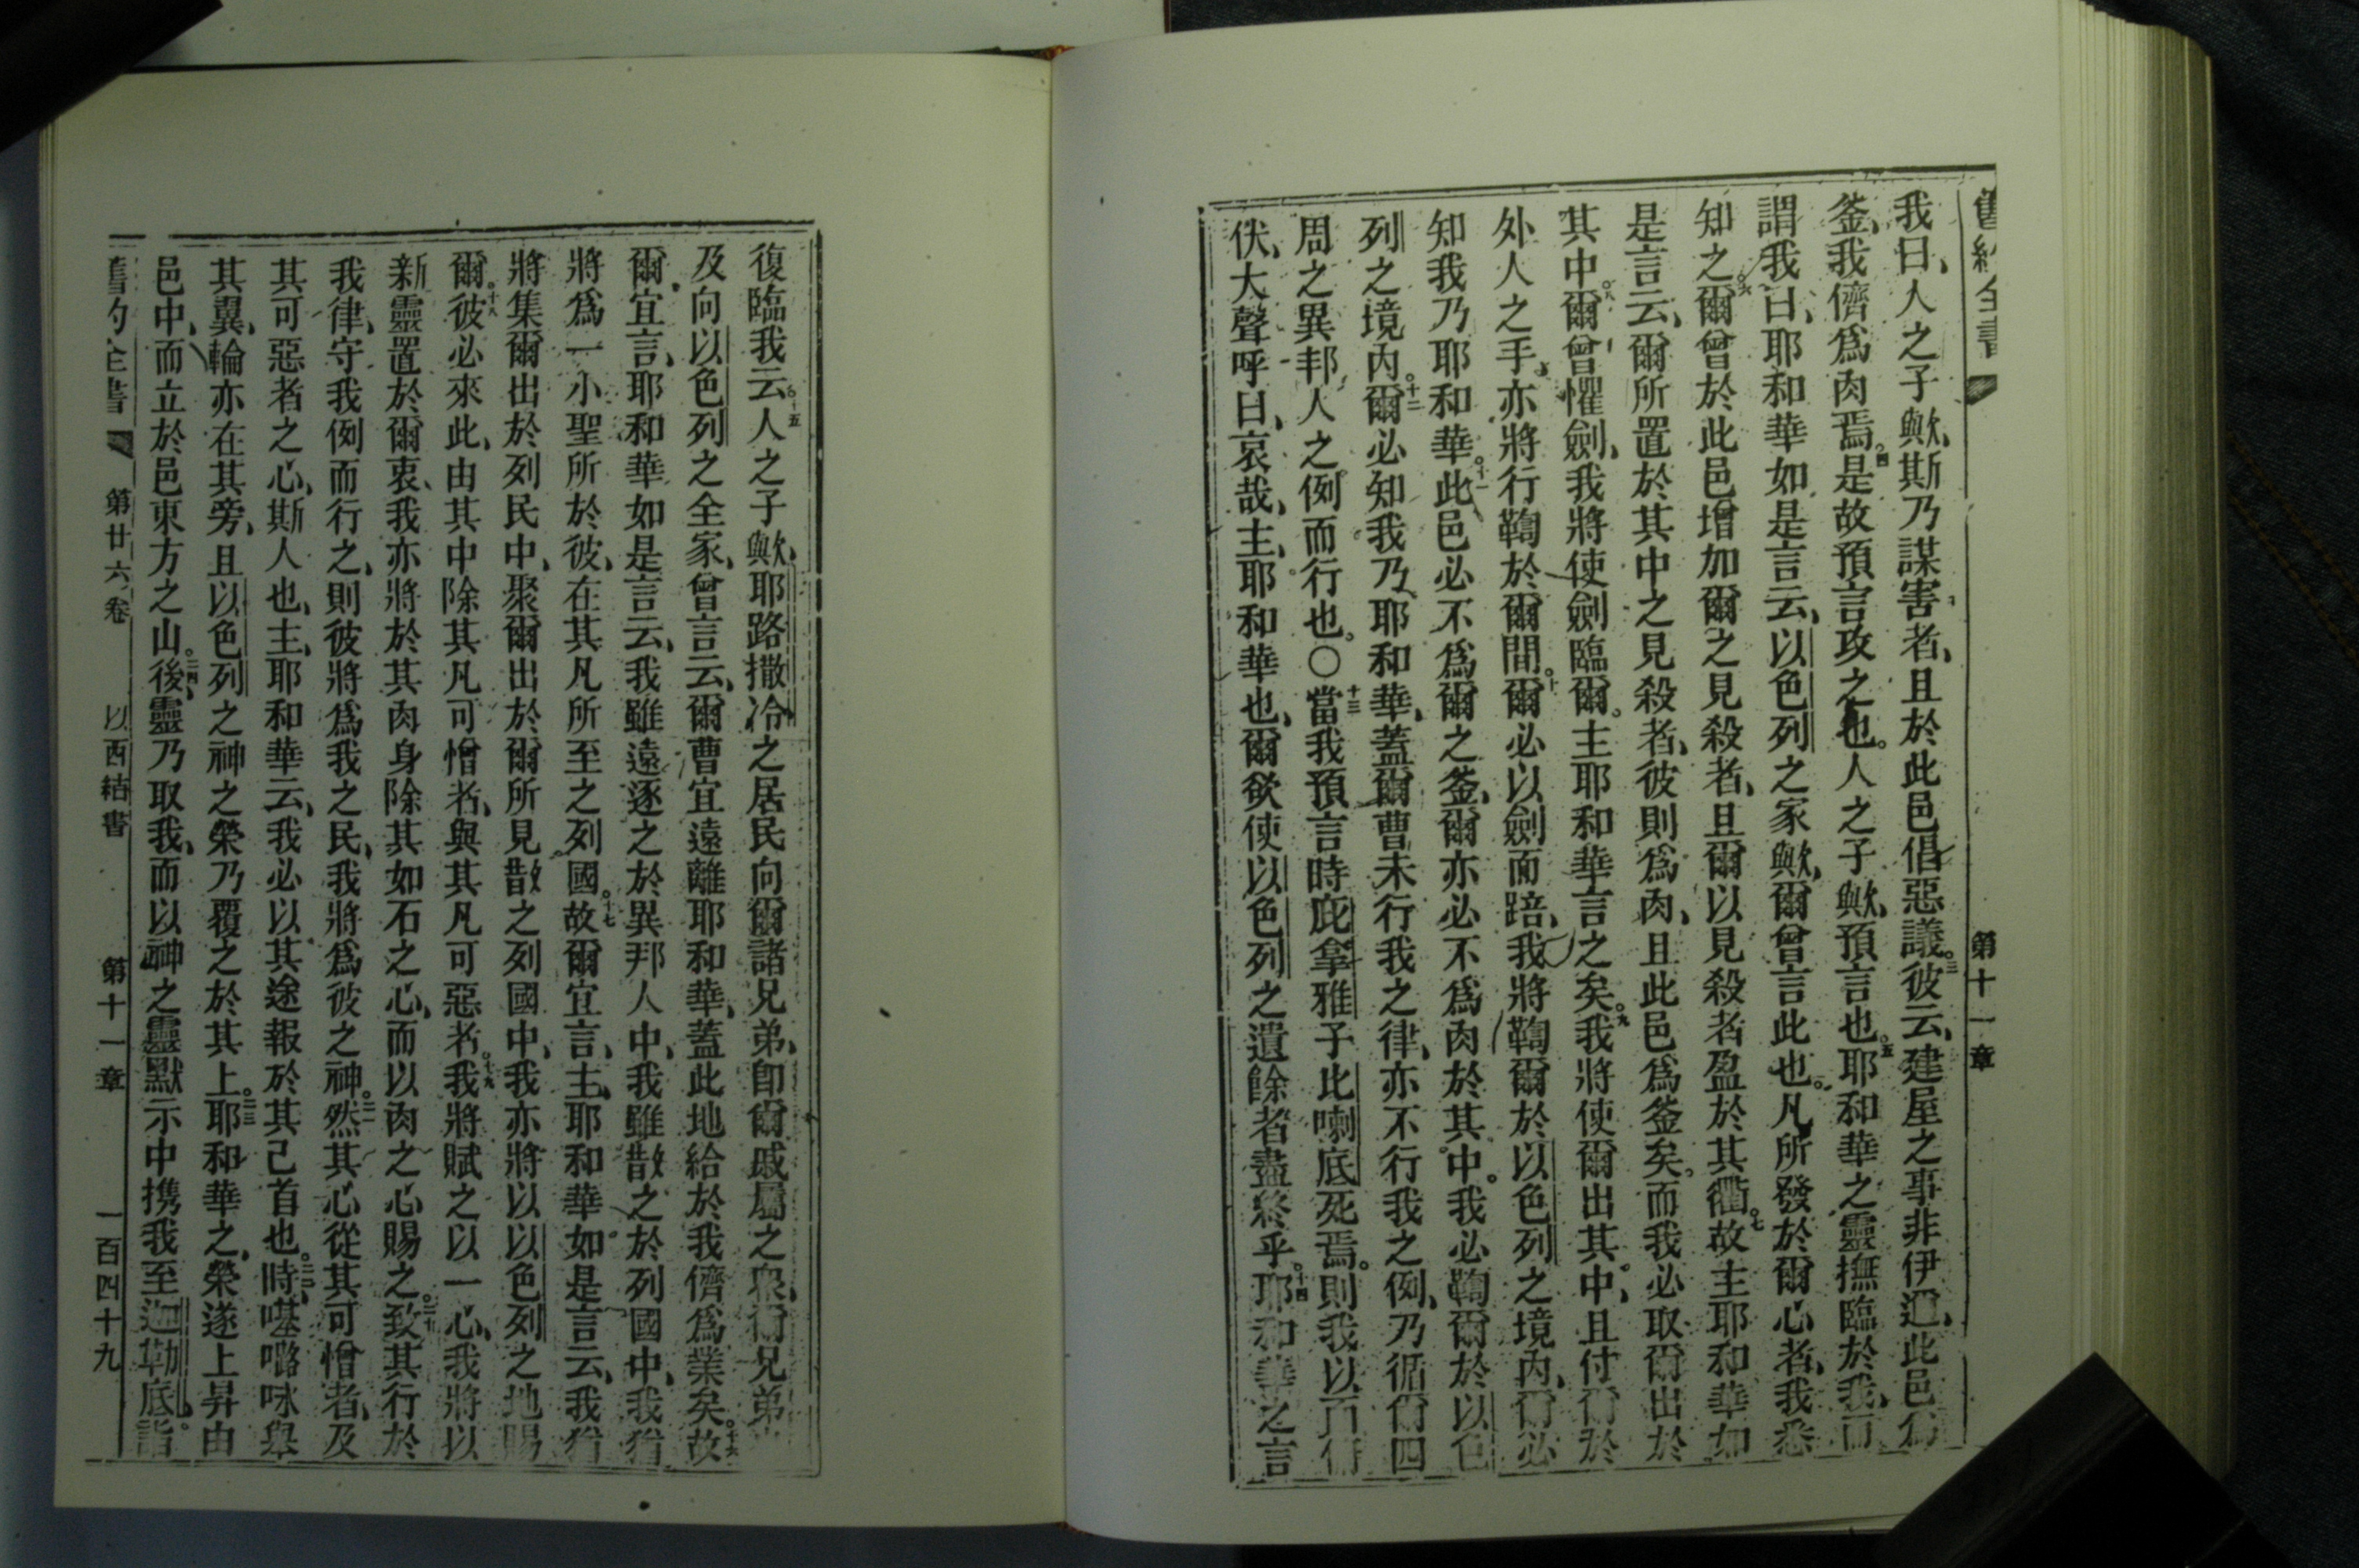 舊約全書 第十一章
我曰、人之子歟、斯乃謀害者、且於此邑倡惡議。三彼云、建屋之事非伊邇、此邑爲
釜、我儕爲肉焉。四是故預言攻之也。人之子歟、預言也。五耶和華之靈撫臨於我、而
謂我曰、耶和華如是言云、以色列之家歟、爾曾言此也。凡所發於爾心者、我悉
知之。六爾曾於此邑增加爾之見殺者、且爾以見殺者盈於其衢。七故主耶和華如
是言云、爾所置於其中之見殺者、彼則爲肉、且此邑爲釜矣。而我必取爾出於
其中。八爾曾懼劍、我將使劍臨爾。主耶和華言之矣。九我將使爾出其中、且付爾於
外人之手、亦將行鞫於爾間。十爾必以劍而踣、我將鞫爾於以色列之境內、爾必
知我乃耶和華。十一此邑必不爲爾之釜、爾亦必不爲肉於其中。我必鞫爾於以色
列之境內。十二爾必知我乃耶和華、蓋爾曹未行我之律、亦不行我之例、乃循爾四
周之異邦人之例而行也。○十三當我預言時庇拿雅子比喇底死焉。則我以面俯
伏、大聲呼曰、哀哉、主耶和華也、爾欲使以色列之遺餘者盡終乎。十四耶和華之言
復臨我云。十五人之子歟、耶路撒冷之居民向爾諸兄弟、卽爾戚屬之衆、爾兄弟
及向以色列之全家、曾言云、爾曹宜遠離耶和華、蓋此地給於我儕爲業矣。十六故
爾宜言、耶和華如是言云、我雖遠逐之於異邦人中、我雖散之於列國中、我猶
將爲一小聖所於彼、在其凡所至之列國。十七故爾宜言、主耶和華如是言云、我猶
將集爾出於列民中、聚爾出於爾所見散之列國中、我亦將以以色列之地賜
爾。十八彼必來此、由其中除其凡可憎者、與其凡可惡者。十九我將賦之以一心、我將以
新靈置於爾衷、我亦將於其肉身除其如石之心、而以肉之心賜之。二十致其行於
我律、守我例而行之、則彼將爲我之民、我將爲彼之神。二一然其心從其可憎者、及
其可惡者之心、斯人也、主耶和華云、我必以其途報於其己首也。二二時𠼻𡀔咏舉
其翼、輪亦在其旁、且以色列之神之榮乃覆之於其上。二三耶和華之榮遂上昇由
邑中、而立於邑東方之山。二四後靈乃取我、而以神之靈默示中携我至迦勒底、詣
舊約全書 第廿六卷 以西結書 第十一章 一百四十九